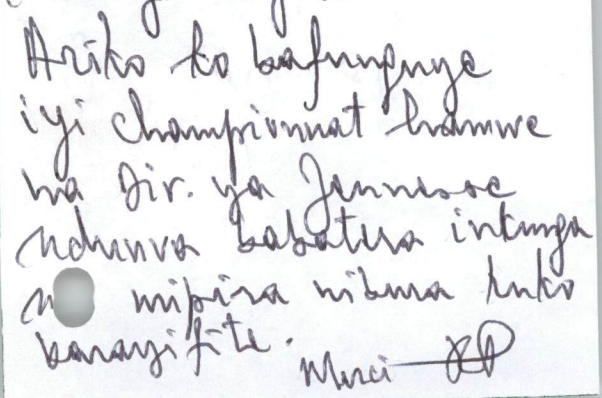 Ariko ko bafunguye
iyi championnat hamwe
na Div. ya Jeunesse
ndumva babatera inkunga
mipira nibura kuko
barayifite.
Merci